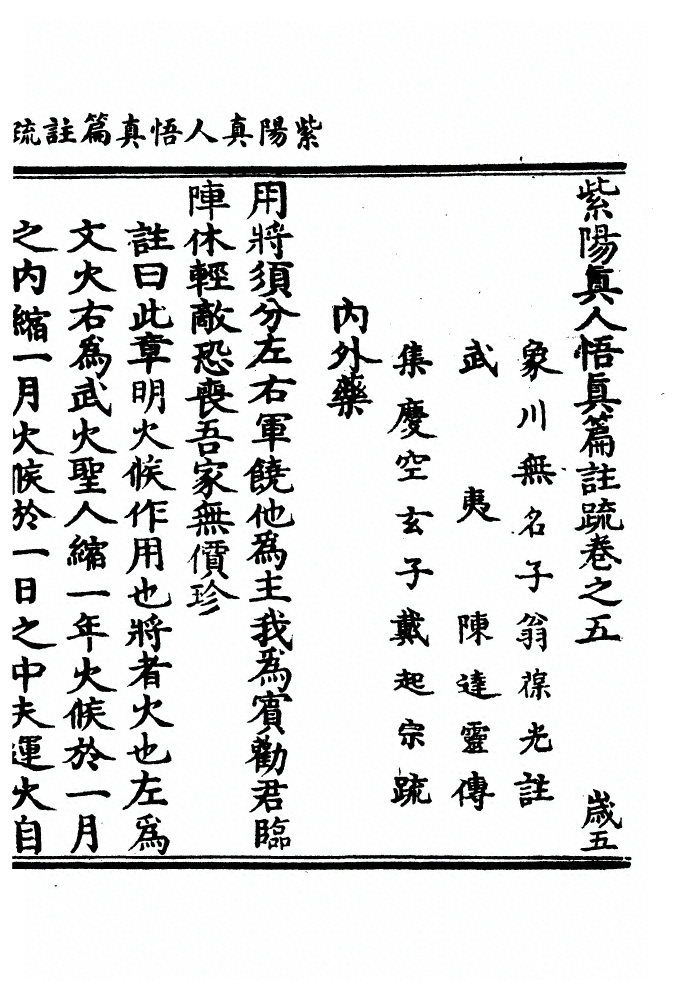 紫陽真人悟真篇註疏
紫陽眞人悟眞篇註疏卷之五 歲五
象川無名子翁葆光註
武夷陳達靈傳
集慶空玄子戴起宗疏
內外藥
用將須分左右軍饒他為主我為賓勸君臨
陣休輕敵恐喪吾家無價珍
註曰此章明火候作用也將者火也左為
文火右為武火聖人縮一年火候於一月
之內縮一月火候於一日之中夫運火自